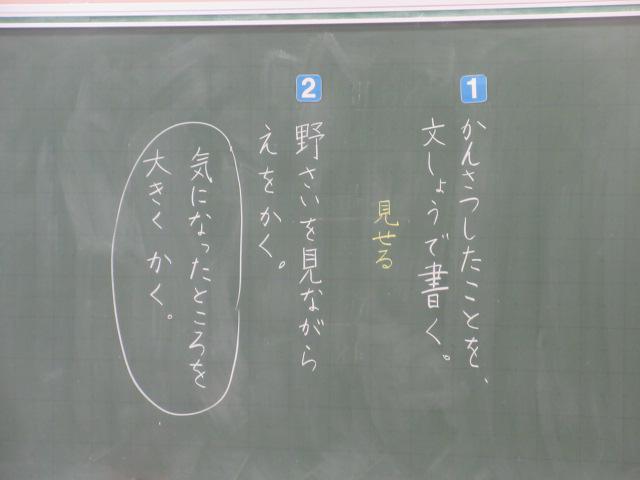 1
かんさつしたことを、
文しょうで書く。
見せる
2
野さいを見ながら
えをかく。
気になったところを
大きく かく。